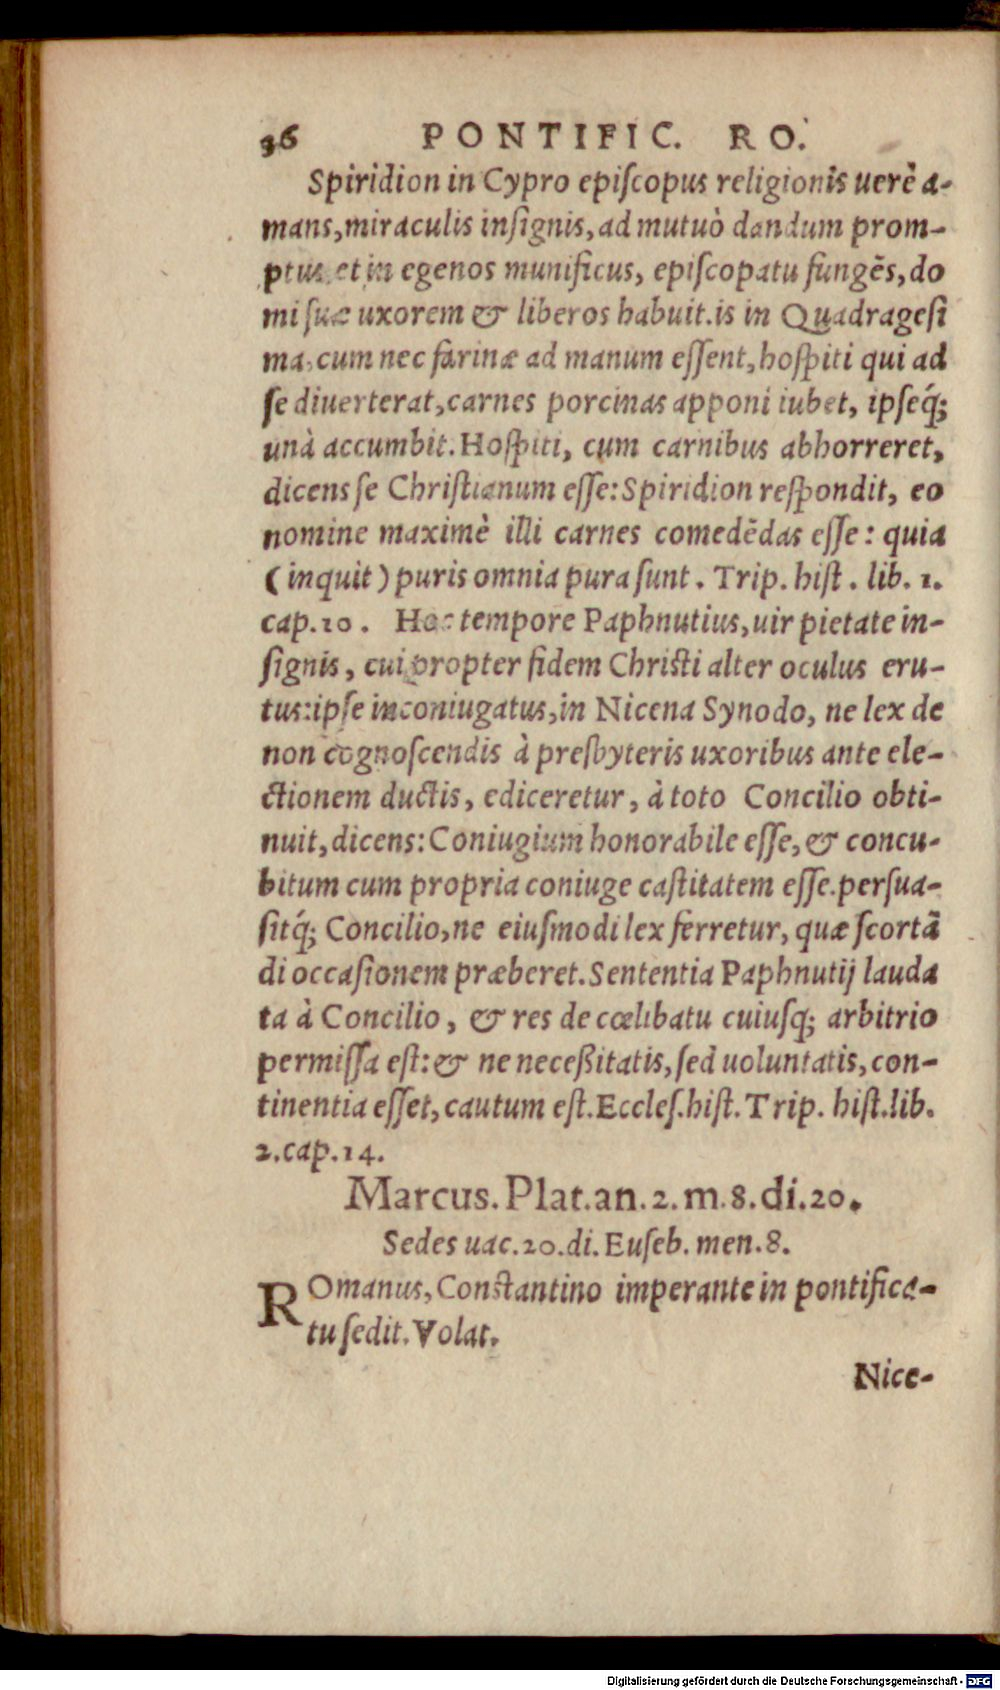 36 PONTIFIC. RO.
Spiridion in Cypro epiſcopus religionis uerè a-
mans, miraculis inſignis, ad mutuò dandum prom-
ptus et in egenos munificus, epiſcopatu fungẽs, do
mi ſuæ uxorem & liberos habuit. is in Quadrageſi
ma, cum nec farinæ ad manum eſſent, hoſpiti qui ad
ſe diuerterat, carnes porcinas apponi iubet, ipſeq́;
unà accumbit. Hoſpiti, cum carnibus abhorreret,
dicens ſe Chriſtianum eſſe: Spiridion reſpondit, eo
nomine maximè illi carnes comedẽdas eſſe: quia
(inquit) puris omnia pura ſunt. Trip. hiſt. lib. 1.
cap. 10. Hoc tempore Paphnutius, uir pietate in-
ſignis, cui propter fidem Chriſti alter oculus eru-
tus: ipſe inconiugatus, in Nicena Synodo, ne lex de
non cognoſcendis à preſbyteris uxoribus ante ele-
ctionem ductis, ediceretur, à toto Concilio obti-
nuit, dicens: Coniugium honorabile eſſe, & concu-
bitum cum propria coniuge caſtitatem eſſe. perſua-
ſitq́; Concilio, ne eiuſmodi lex ferretur, quæ ſcortã
di occaſionem præberet. Sententia Paphnutij lauda
ta à Concilio, & res de cœlibatu cuiuſq; arbitrio
permiſſa eſt: & ne neceßitatis, ſed uoluntatis, con-
tinentia eſſet, cautum eſt. Eccleſ. hiſt. Trip. hiſt. lib.
2. cap. 14.
Marcus. Plat. an. 2. m. 8. di. 20.
Sedes uac. 20. di. Euſeb. men. 8.
ROmanus, Conſtantino imperante in pontifica-
tu ſedit. Volat.
Nice-
Digitalisierung gefördert durch die Deutsche Forschungsgemeinschaft - DFG